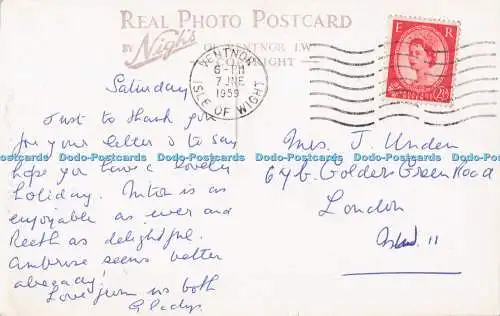 REAL PHOTO POSTCARD
BY Nigh's OF VENTNOR I.W.
COPYRIGHT
VENTNOR
6-PM
7 JNE
1959
ISLE OF WIGHT
E R
2½D
Saturday
Just to thank you
for your letter & to say
hope you have a lovely
holiday. is as
enjoyable as ever and
as delightful.
Ambrose seems better
already!
Love from us both
Gladys.
Mrs. J. Unden
Golders Green Road
London
11
www.Postcards-Postcards.com